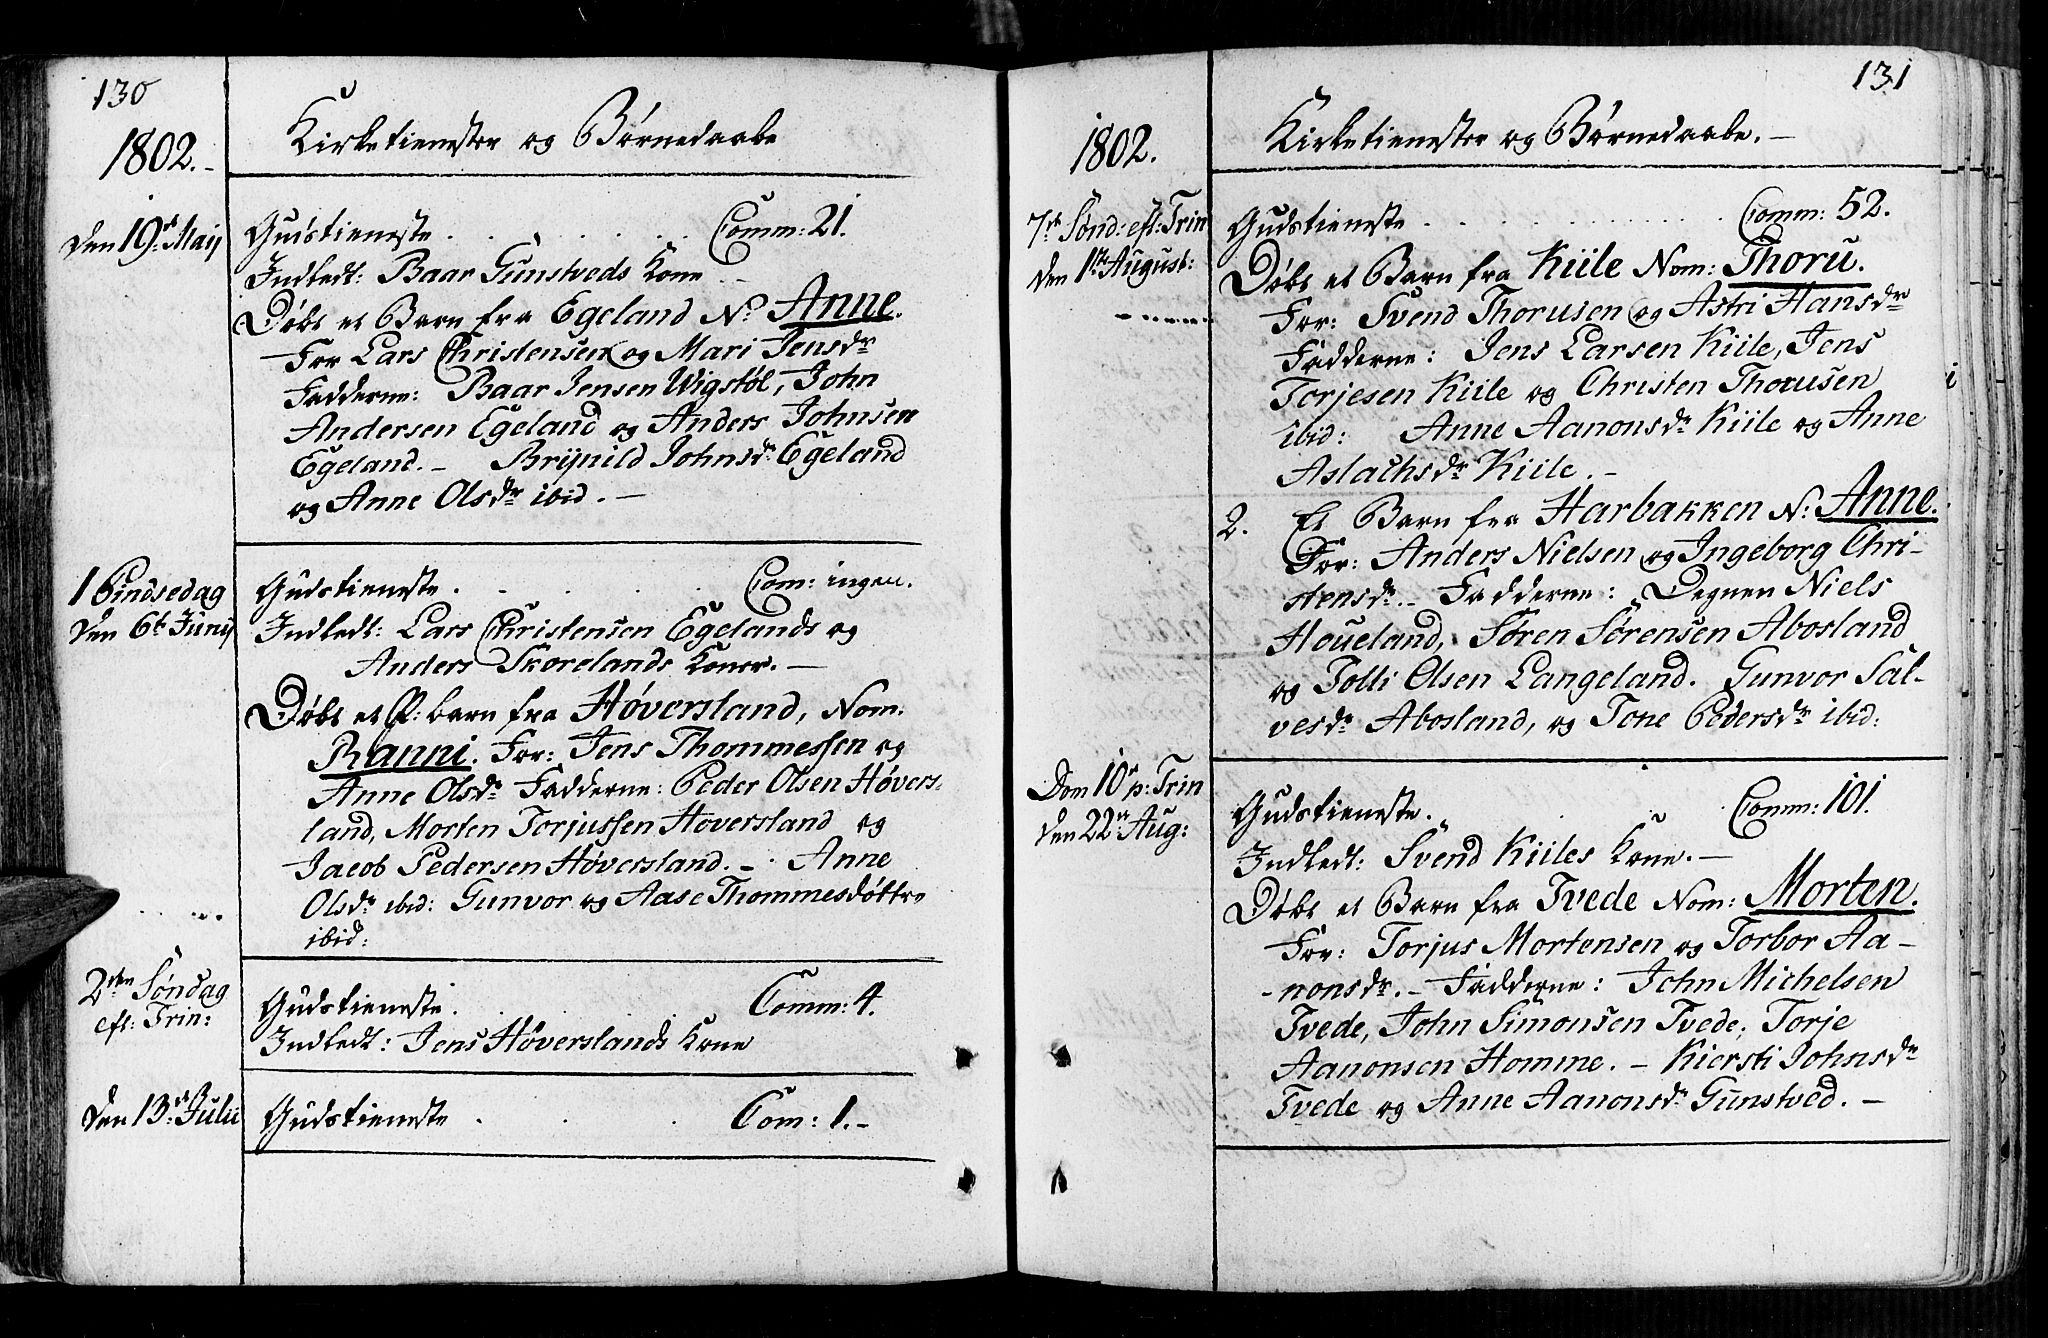 130
1802.-
Kirketienester og Børnedaabe
den 19de Maij
Gudstieneste . . . . . . . Comm: 21.
Indledt: Baar Gunstveds Kone
Døbt et Barn fra Egeland N: Anne.
For Lars Christensen og Mari Jensdr
Fadderne: Baar Jensen Wigstøl, John
Andersen Egeland og Anders Johnsen
Egeland. - Brynild Johnsdr Egeland
og Anne Olsdr ibid. -
1 Pindsedag
den 6t Junij
Gudstieneste . . . . Com: ingen.
Indledt: Lars Christensen Egelands og
Anders Skorelands Koner. -
Døbt et P: barn fra Høversland, Nom:
Ranni. For: Jens Thommessen og
Anne Olsdr Fadderne: Peder Olsen Høvers-
land, Morten Torjussen Høversland og
Jacob Pedersen Høversland. - Anne
Olsdr ibid: Gunvor og Aase Thommesdøttre
ibid:
2den Søndag
eft: Trin:
Gudstieneste. . . . Comm: 4.
Indledt: Jens Høverslands Kone
den 13de Julii
Gudstieneste . . . Com: 1. -
131
1802.
Kirketienester og Børnedaabe. -
7de Sønd: eft: Trin
den 1ste August:
Gudstieneste . . . . . . . Comm: 52.
Døbt et Barn fra Kiile Nom: Thoru.
For: Svend Thorusen og Astri Hansdr
Fadderne: Jens Larsen Kiile, Jens
Torjesen Kiile og Christen Thorusen
ibid: Anne Aanonsdr Kiile og Anne
Aslachsdr Kiile. -
2. Et Barn fra Harbakken N: Anne.
For: Anders Nielsen og Ingeborg Chri-
stensdr. - Fadderne: Degnen Niels
Houeland, Søren Sørensen Abosland
og Tolli Olsen Langeland. Gunvor Sal-
vesdr Abosland, og Tone Pedersdr ibid:
Dom 10de p: Trin
den 22de Aug:
Gudstieneste. . . Comm: 101.
Indledt: Svend Kiiles Kone. -
Døbt et Barn fra Tvede Nom: Morten.
For: Torjus Mortensen og Torbor Aa-
-nonsdr. - Fadderne: John Michelsen
Tvede, John Simonsen Tvede, Torje
Aanonsen Homme. - Kiersti Johnsdr
Tvede og Anne Aanonsdr Gunstved. -